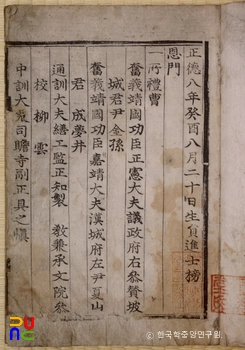 正德八年癸酉八月二十日生員進士榜
恩門
一所禮曹
奮義靖國功臣正憲大夫議政府右叅贊坡
城君尹金孫
奮義靖國功臣嘉靖大夫漢城府左尹夏山
君成夢井
通訓大夫繕工監正知製 敎兼承文院叅
校柳雲
中訓大夫司贍寺副正具之愼
© 한국학중앙연구원